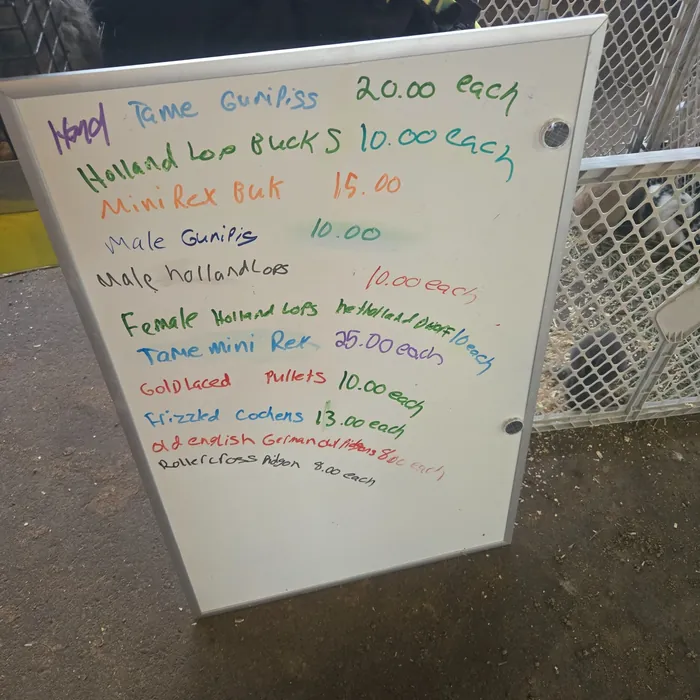 Hand Tame Gunipiss 20.00 each
Holland Lop Bucks 10.00 each
Mini Rex Buk 15.00
Male Gunipis 10.00
Male hollandLops 10.00 each
Female Holland Lops 10 each
Tame mini Rex 25.00 each
Gold laced Pullets 10.00 each
Frizzled Cochens 13.00 each
old english German 8.00 each
Roller cross Pidgon 8.00 each